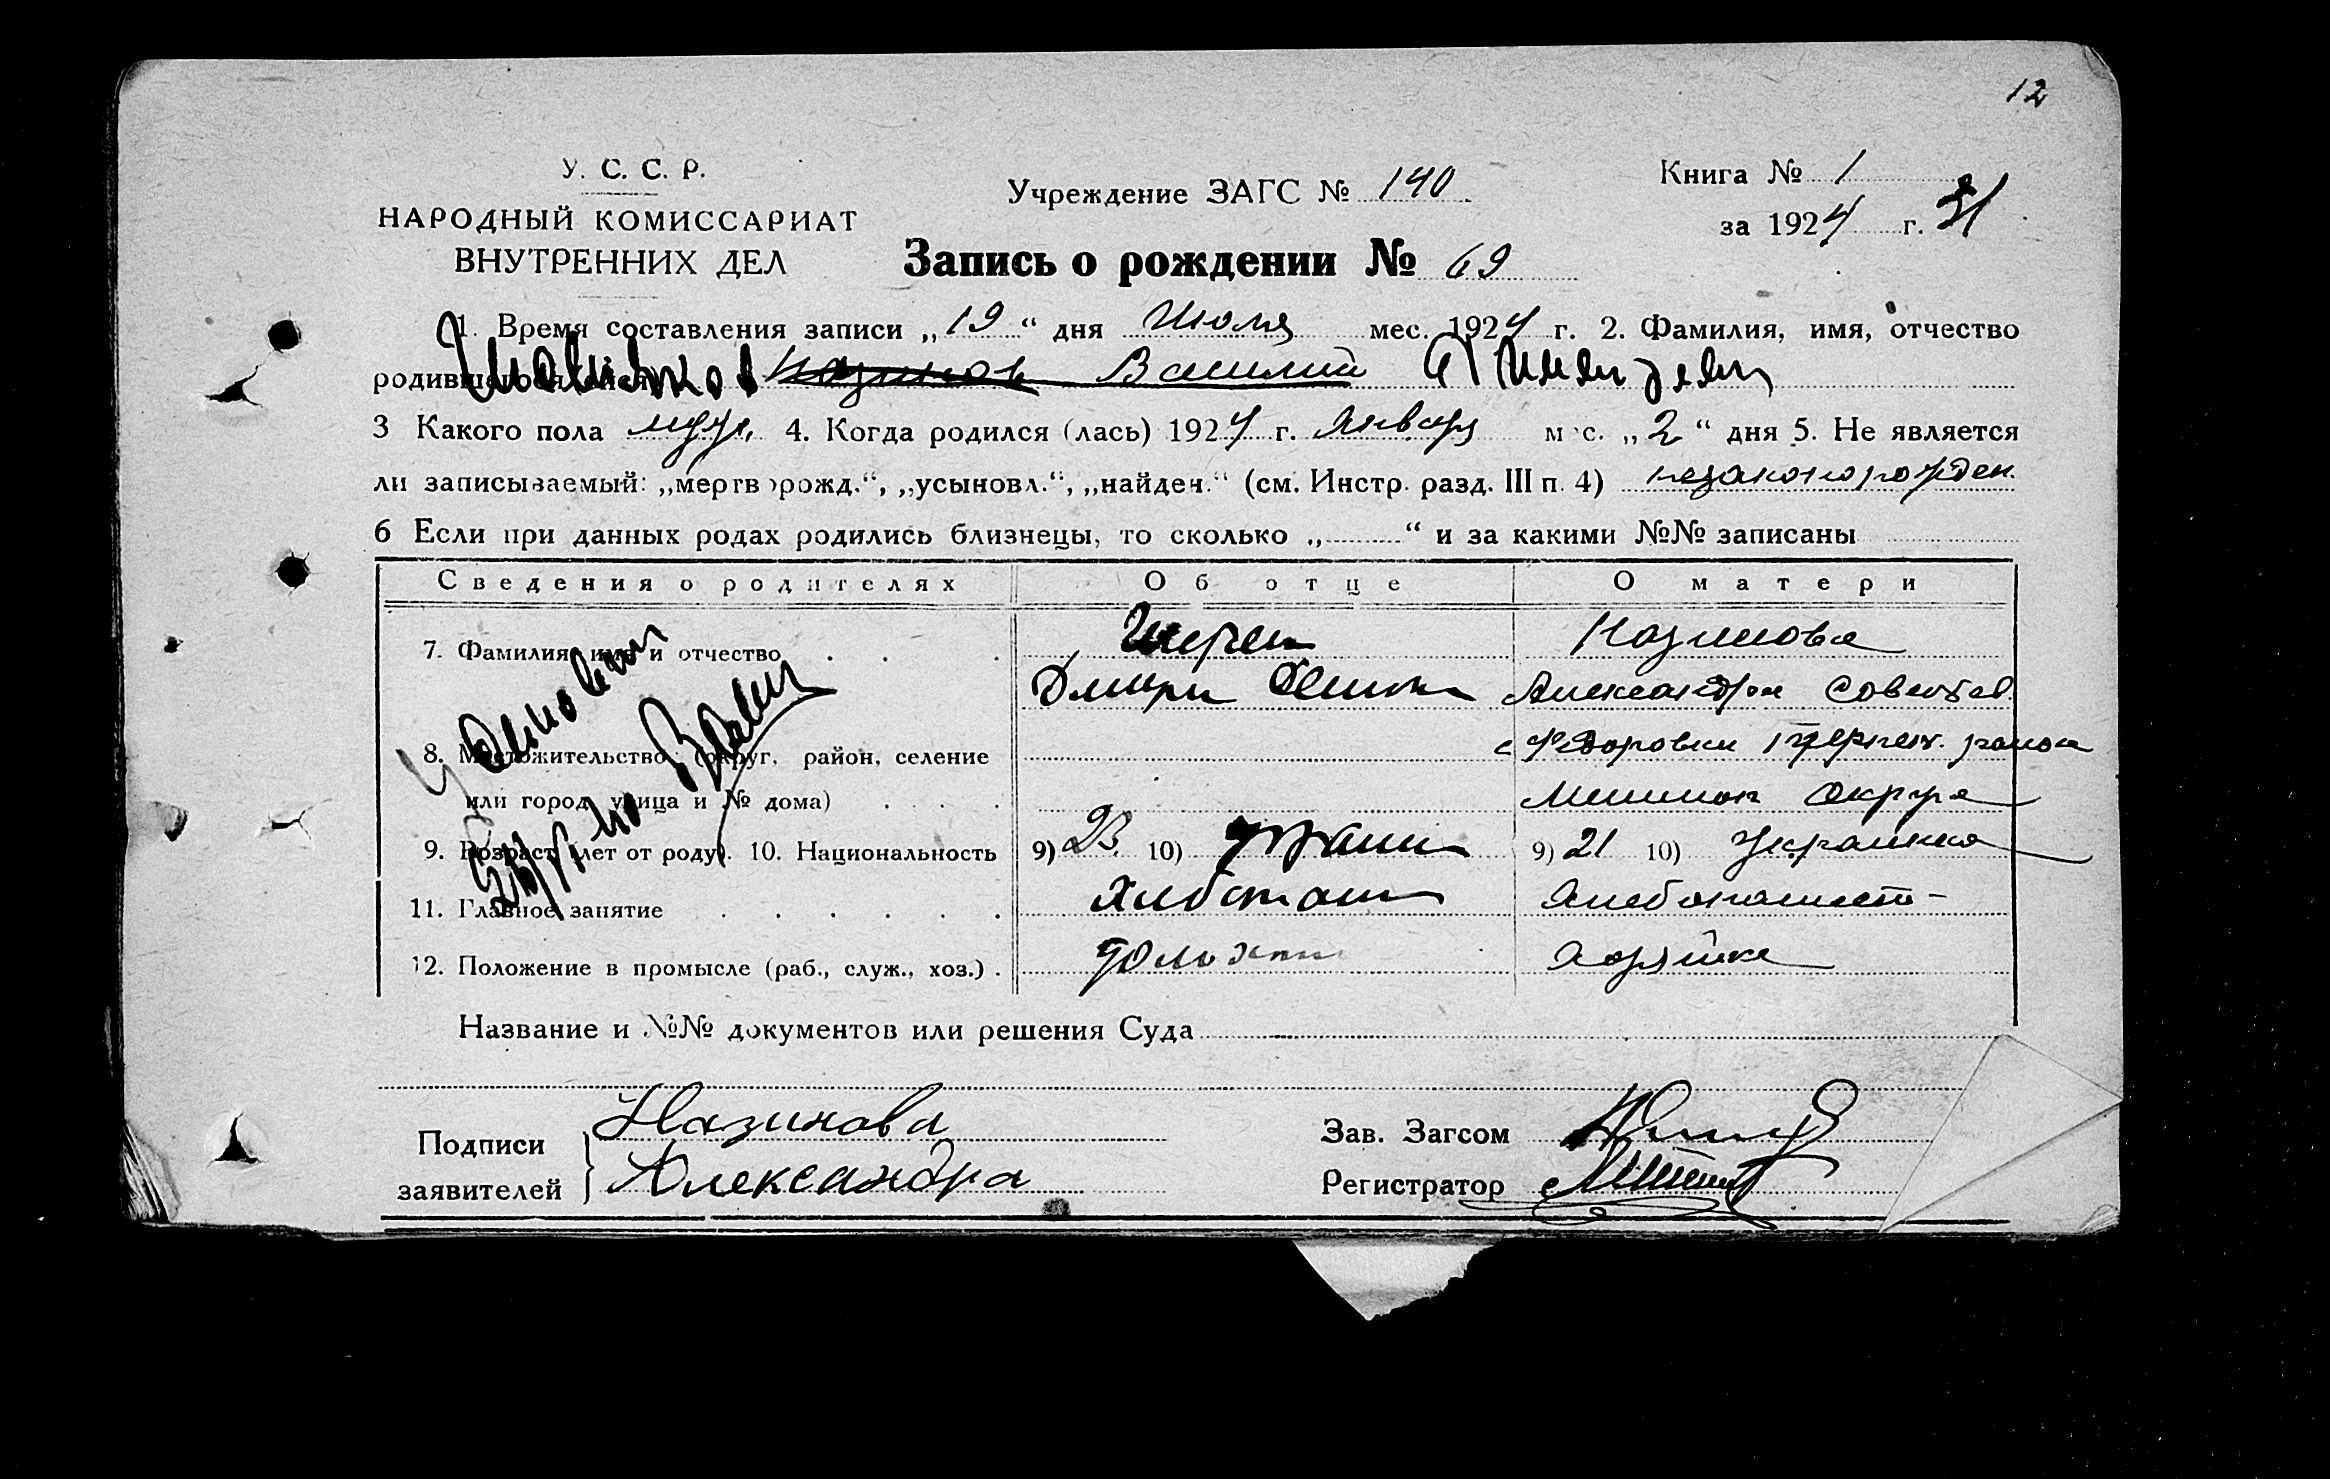 12
У. С. С. Р.
НАРОДНЫЙ КОМИССАРИАТ
ВНУТРЕННИХ ДЕЛ
Учреждение ЗАГС № 140
Книга № 1
за 1924 г.
Запись о рождении № 69
1. Время составления записи „19“ дня Июля мес. 1924 г. 2. Фамилия, имя, отчество
родившегося Василий
3 Какого пола муж. 4. Когда родился (лась) 1924 г. Января мес. „2“ дня 5. Не является
ли записываемый: „мертворожд.“, „усыновл.“, „найден.“ (см. Инстр. разд. III п. 4) незаконорожден.
6 Если при данных родах родились близнецы, то сколько „ “ и за какими №№ записаны
Сведения о родителях Об отце О матери
7. Фамилия, имя и отчество Назинова
Дмитри Александра
8. Местожительство (округ, район, селение с Федоровки района
или город, улица и № дома) Округа
9. Возраст (лет от роду). 10. Национальность 9) 23. 10) 9) 21 10) Украинка
11. Главное занятие Хлебопаш Хлебопашест-
12. Положение в промысле (раб., служ., хоз.) Хозяйка
Название и №№ документов или решения Суда
Подписи заявителей Назинова
Александра
Зав. Загсом
Регистратор